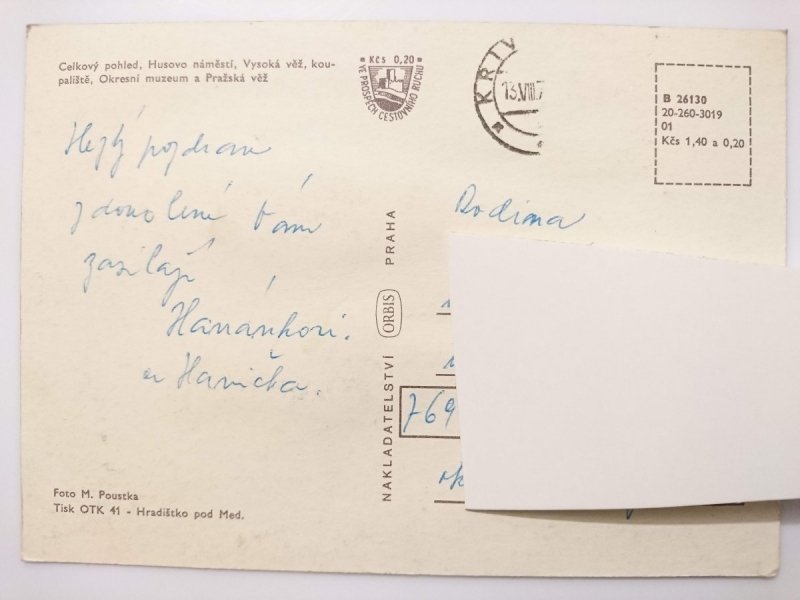 Celkový pohled, Husovo náměstí, Vysoká věž, kou-
paliště, Okresní muzeum a Pražská věž
Kčs 0,20
VE PROSPĚCH CESTOVNÍHO RUCHU
KŘIV
13.VIII.7
B 26130
20-260-3019
01
Kčs 1,40 a 0,20
pozdrav
z dovolené Vám
zasílají
Hanánkovi.
a Hanička.
Rodina
769
ok
NAKLADATELSTVÍ ORBIS PRAHA
Foto M. Poustka
Tisk OTK 41 - Hradištko pod Med.